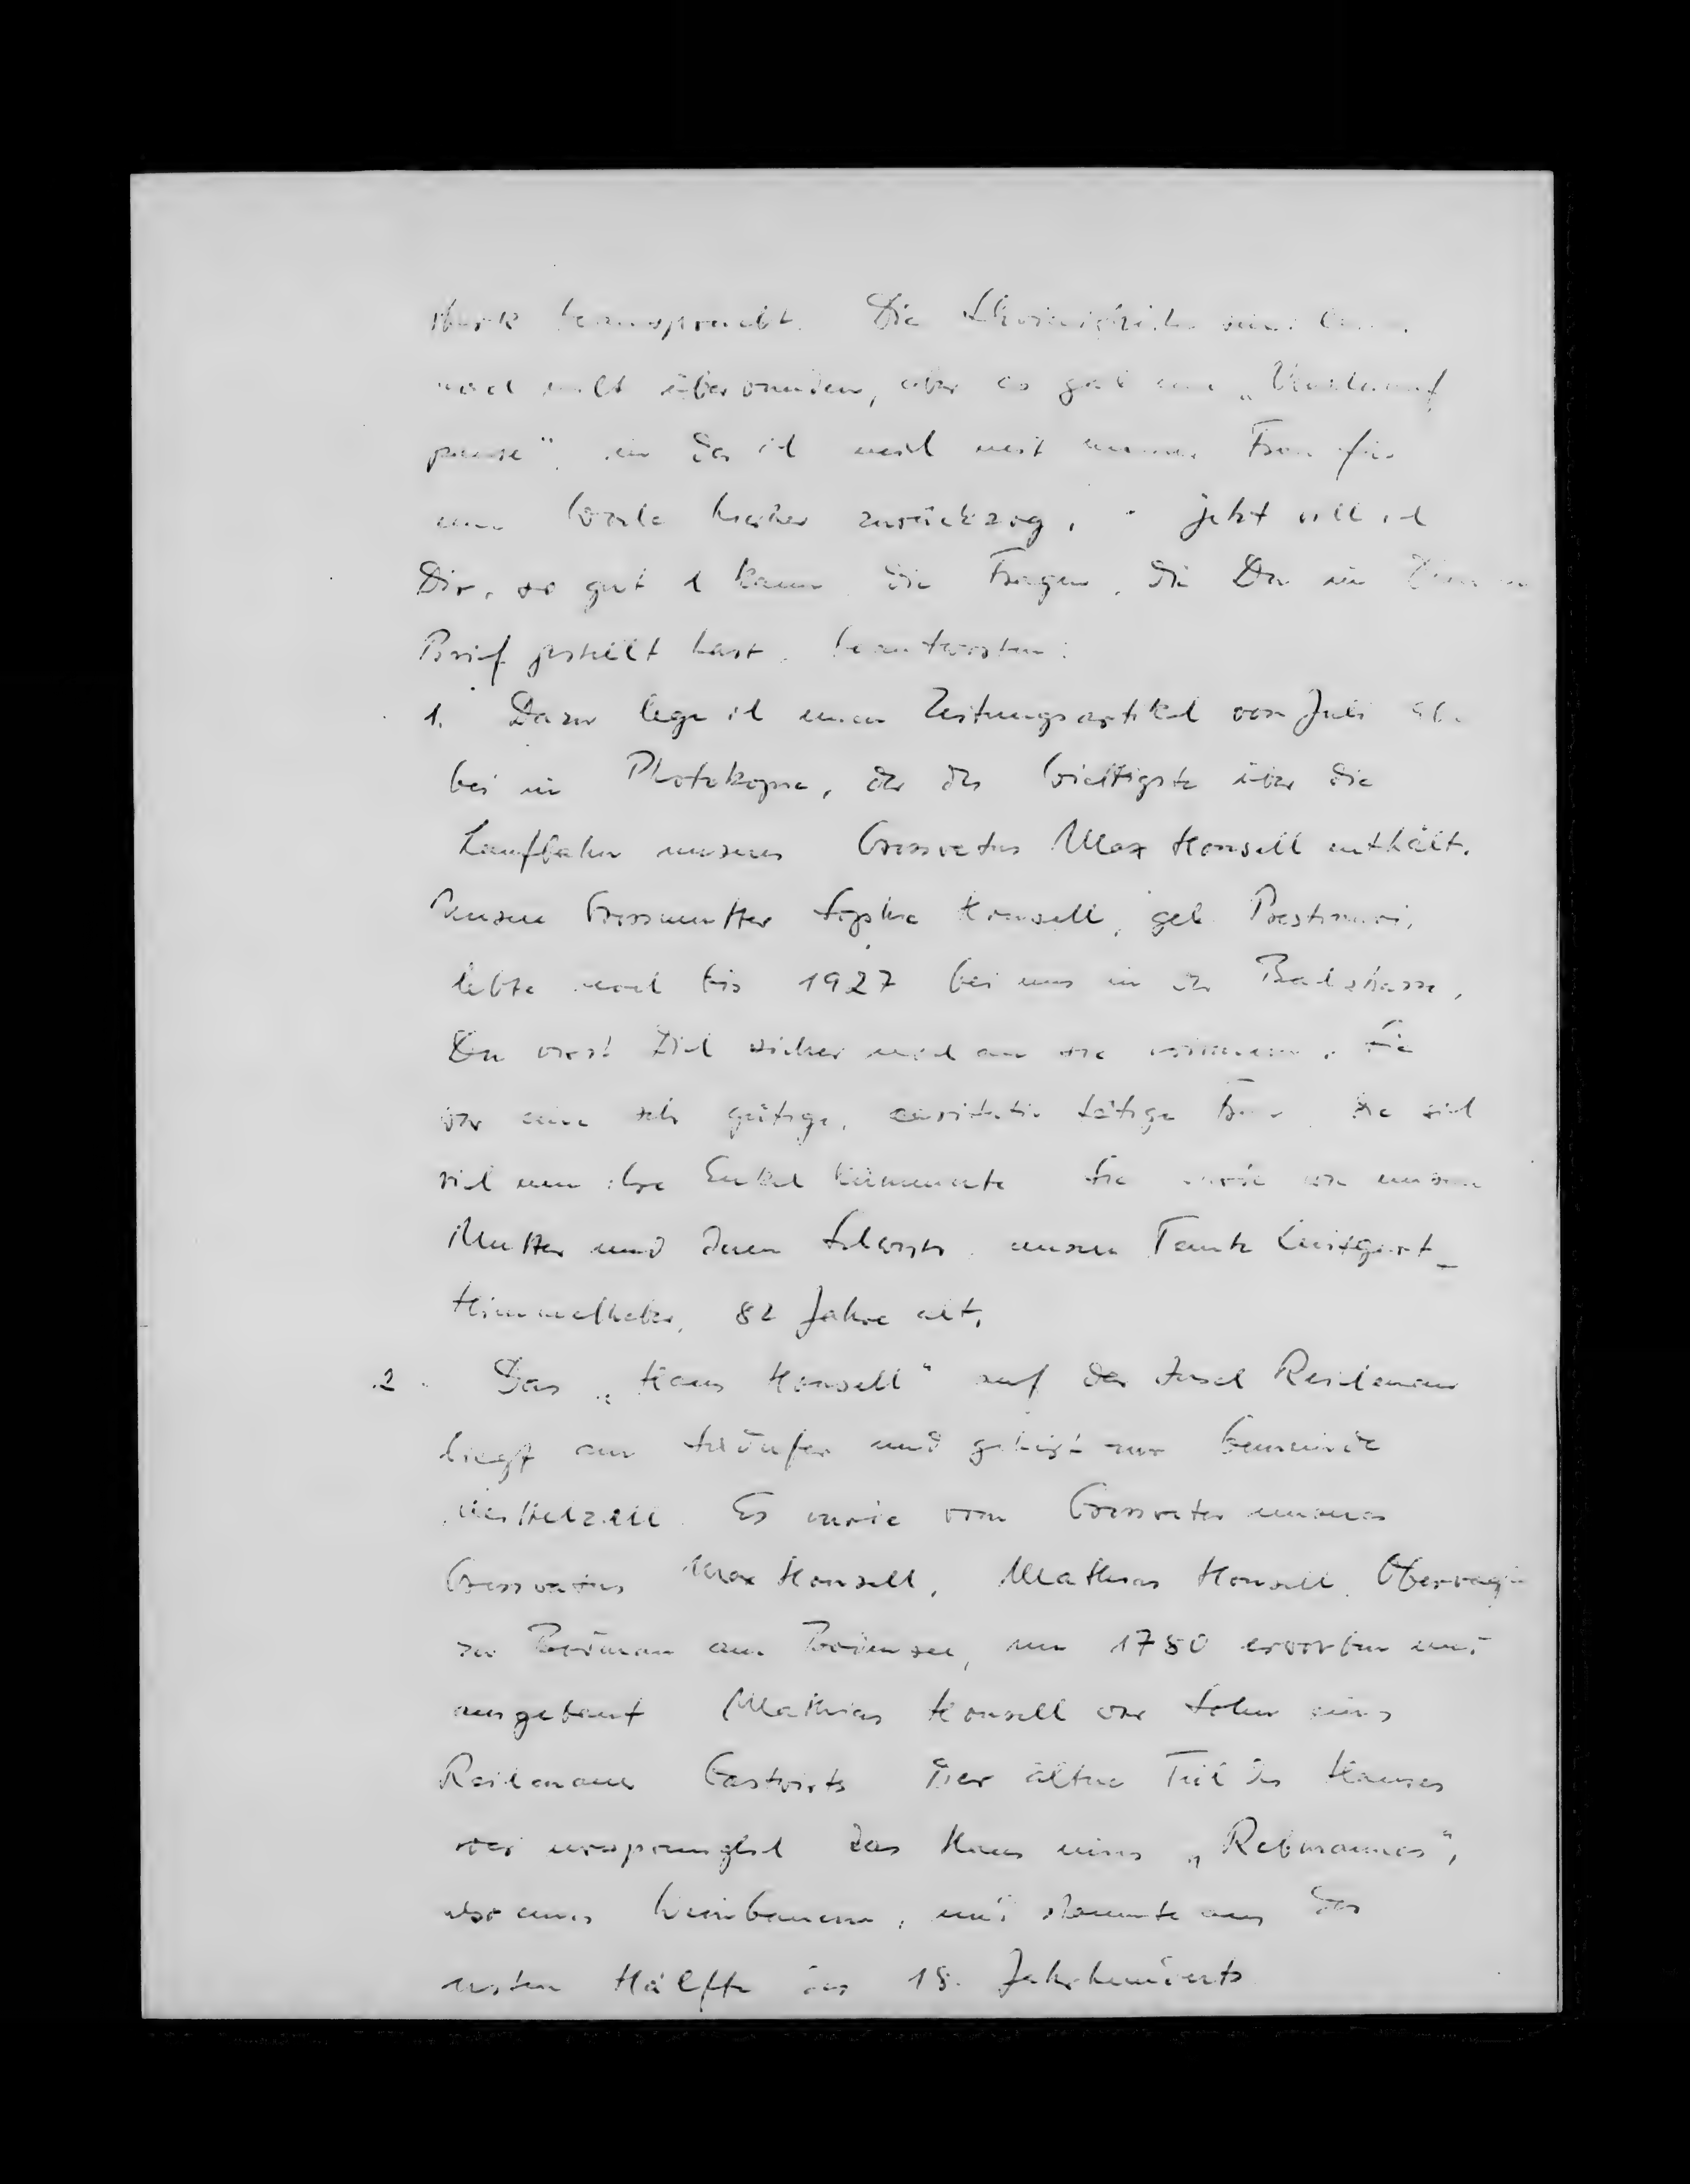 stark beansprucht. Die Schwierigkeiten sind
noch nicht überwunden, aber es gab eine „Verschnauf
pause", in der ich mich mit meiner Frau für
eine Weile hierher zurückzog. - Jetzt will ich
Dir, so gut ich kann, die Fragen, die Du in Deinem
Brief gestellt hast, beantworten:
1. Dazu lege ich einen Zeitungsartikel vom Juli
bei in Photokopie, der das Wichtigste über die
Laufbahn unseres Grossvaters Max Honsell enthält.
Unsere Grossmutter Sophie Honsell, geb. Prestinari,
lebte noch bis 1927 bei uns in der Bachstrasse,
Du wirst Dich sicher noch an sie erinnern. Sie
war eine sehr gütige, caritativ tätige Frau, die sich
viel um ihre Enkel kümmerte. Sie wurde wie unsere
Mutter und deren Schwester, unsere Tante Luitgart
Himmelheber, 82 Jahre alt.
2. Das „Haus Honsell" auf der Insel Reichenau
liegt am Südufer und gehört zur Gemeinde
Mittelzell. Es wurde vom Grossvater unseres
Grossvaters Max Honsell, Mathias Honsell,
zu Bodman am Bodensee, um 1780 erworben und
ausgebaut. Mathias Honsell war Sohn eines
Reichenauer Gastwirts. Der ältere Teil des Hauses
war ursprünglich das Haus eines „Rebmannes",
also eines Weinbauern, und stammte aus der
ersten Hälfte des 18. Jahrhunderts